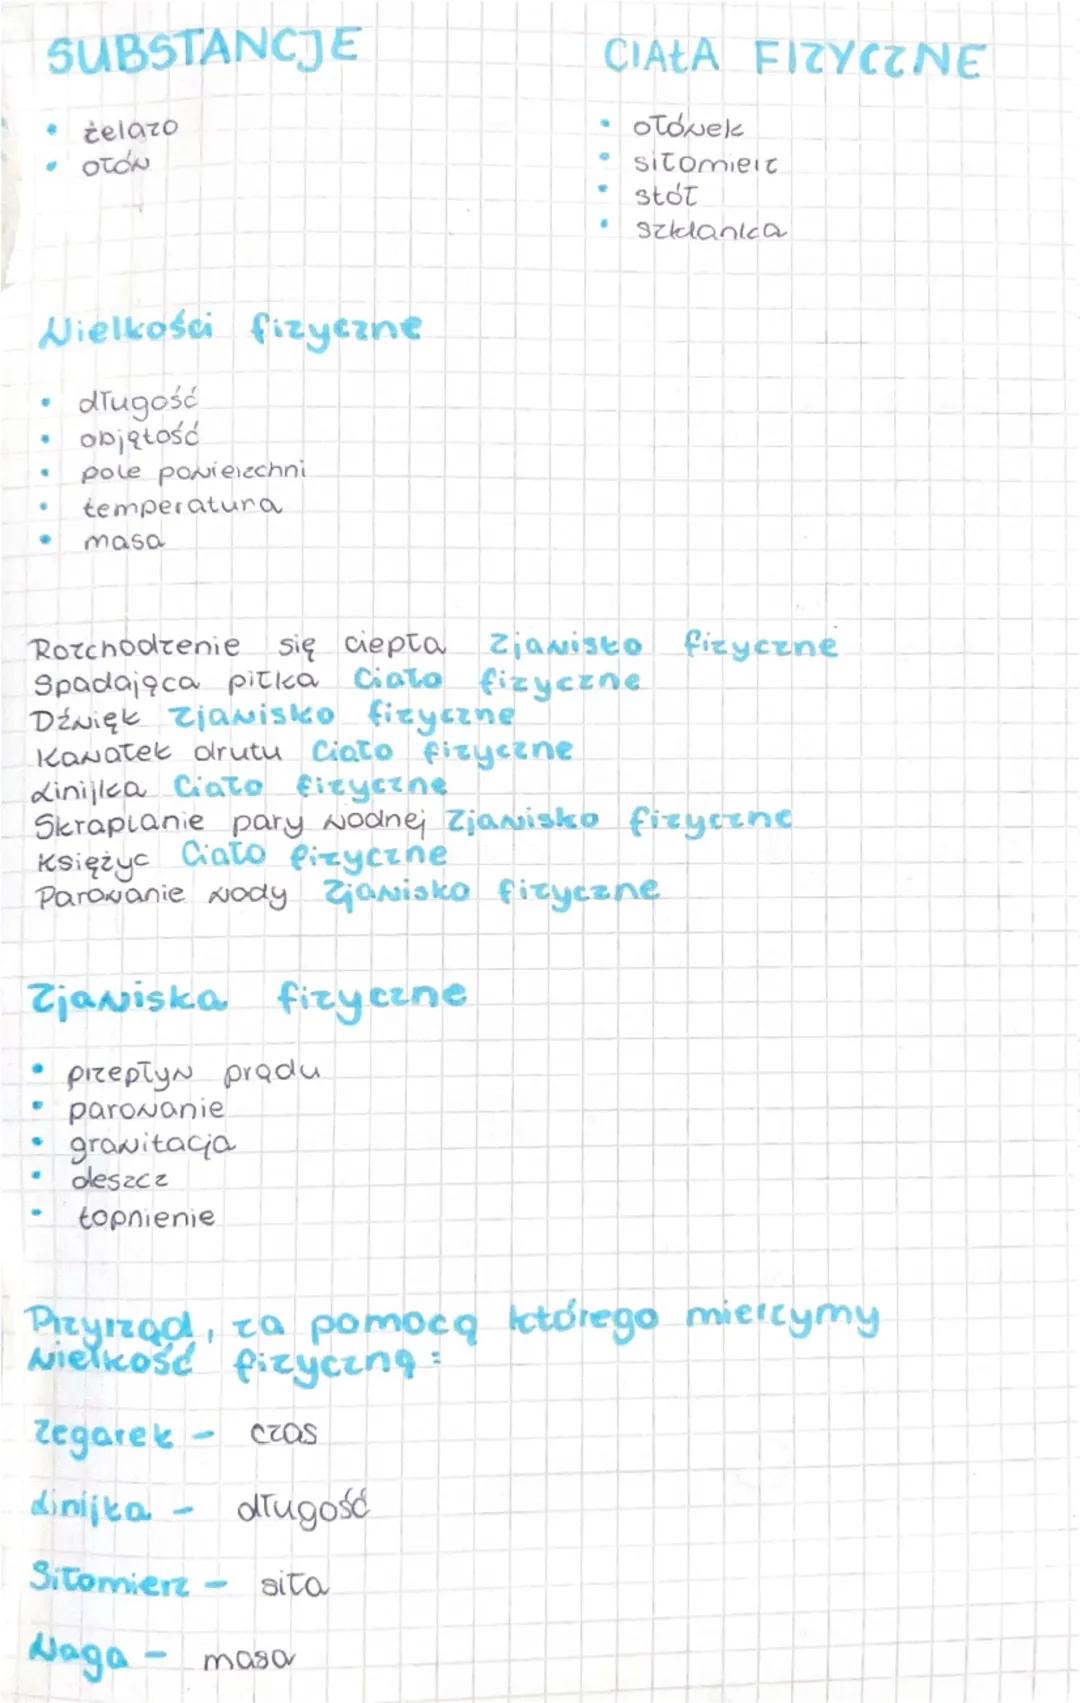 SUBSTANCJE
• żelazo
• ołów
CIAŁA FIZYCZNE
• ołówek
• siłomierz
• stół
• szklanka
Wielkości fizyczne
• długość
• objętość
• pole powierzchni
• temperatura
• masa
Rozchodzenie się ciepła Zjawisko fizyczne
Spadająca piłka Ciało fizyczne
Dźwięk Zjawisko fizyczne
Kawałek drutu Ciało fizyczne
Linijka Ciało fizyczne
Skraplanie pary wodnej Zjawisko fizyczne
Księżyc Ciało fizyczne
Parowanie wody Zjawisko fizyczne
Zjawiska fizyczne
• przepływ prądu
• parowanie
• grawitacja
• deszcz
• topnienie
Przyrząd, za pomocą którego mierzymy
wielkość fizyczną:
Zegarek - czas
Linijka - długość
Siłomierz - siła
Waga - masa